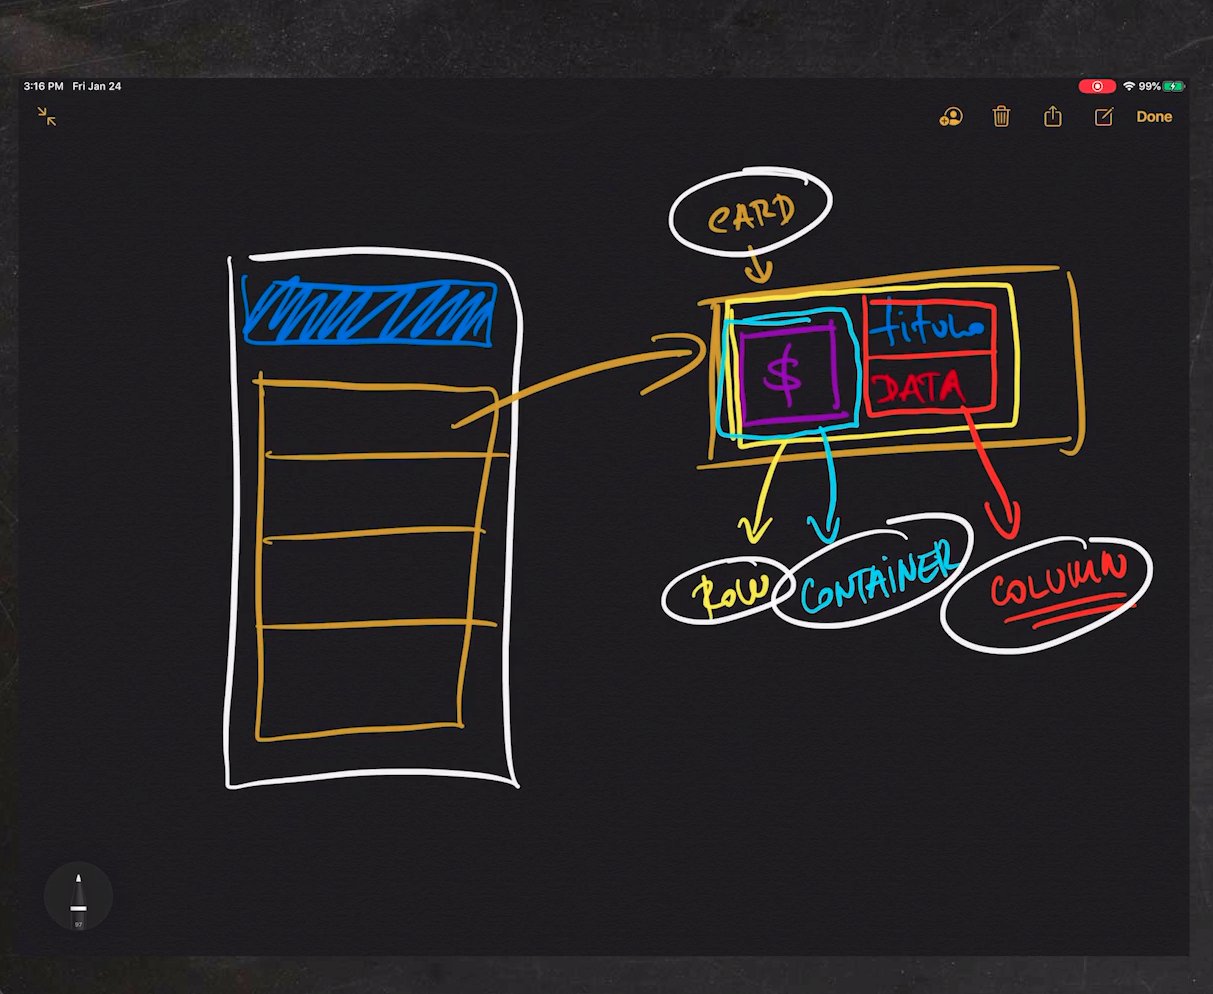 3:16 PM Fri Jan 24
99%
Done
CARD
$
título
DATA
ROW
CONTAINER
COLUMN
97